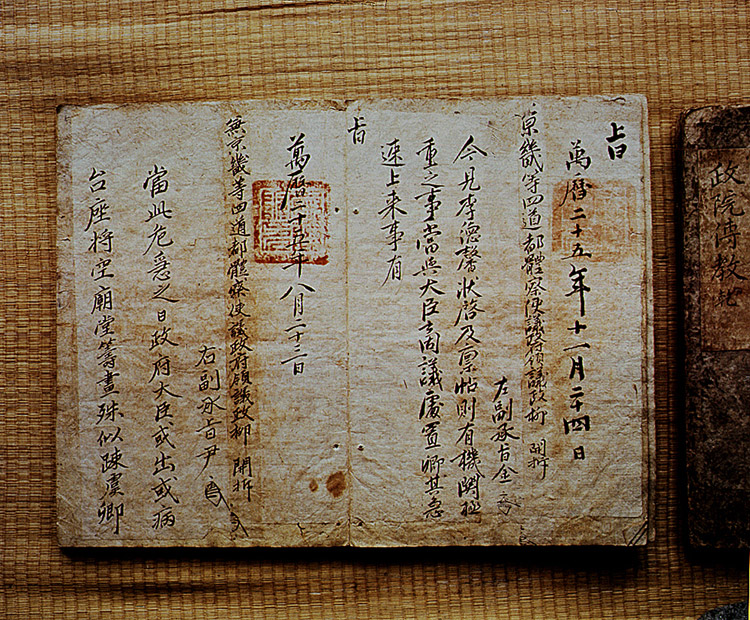 旨
萬曆二十五年十一月二十四日
京畿等四道都體察使議政府領議政柳 開拆
左副承旨金
今見李德馨狀啓及稟帖則有機關極
重之事當與大臣同議處置卿其急
速上来事有
旨
萬曆二十五年八月二十三日
兼京畿等四道都體察使議政府領議政柳 開拆
右副承旨尹
當此危急之日政府大臣或出或病
台座將空廟堂籌畫殊似踈虞卿
政院傳教